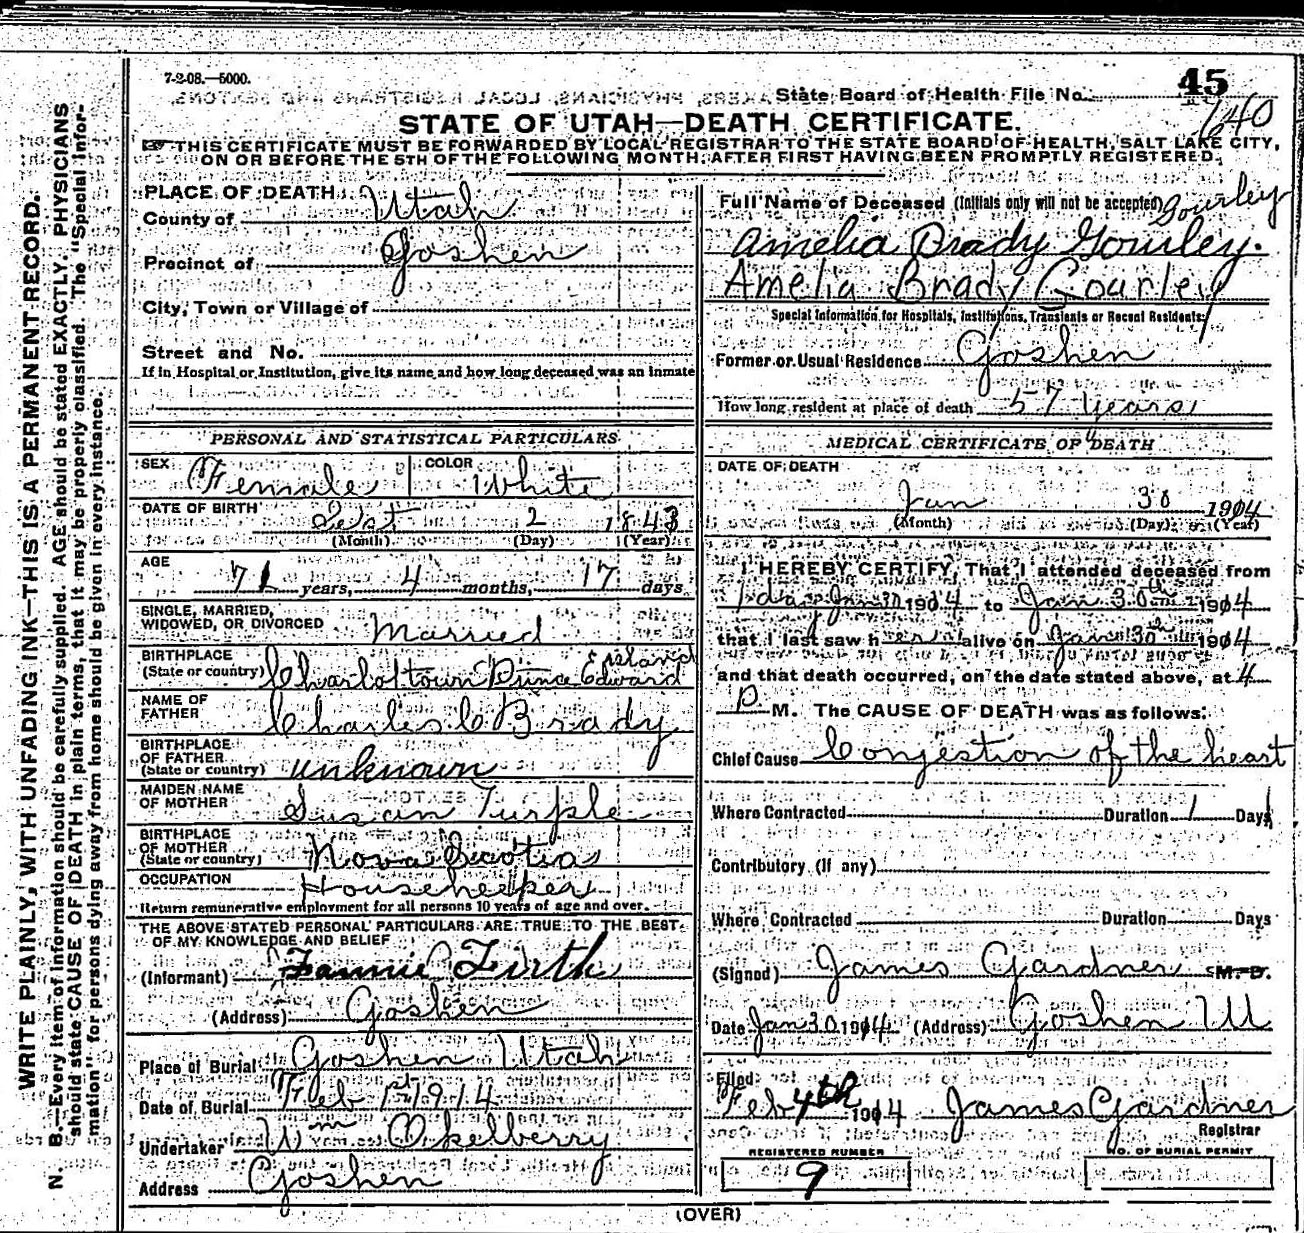 7-2-08.—5000.
State Board of Health File No. 45
640
STATE OF UTAH—DEATH CERTIFICATE.
THIS CERTIFICATE MUST BE FORWARDED BY LOCAL REGISTRAR TO THE STATE BOARD OF HEALTH, SALT LAKE CITY,
ON OR BEFORE THE 5TH OF THE FOLLOWING MONTH, AFTER FIRST HAVING BEEN PROMPTLY REGISTERED.
WRITE PLAINLY, WITH UNFADING INK—THIS IS A PERMANENT RECORD.
N. B.—Every item of information should be carefully supplied. AGE should be stated EXACTLY. PHYSICIANS
should state CAUSE OF DEATH in plain terms, that it may be properly classified. The "Special Infor-
mation" for persons dying away from home should be given in every instance.
PLACE OF DEATH
County of Utah
Precinct of Goshen
City, Town or Village of
Street and No.
If in Hospital or Institution, give its name and how long deceased was an inmate
PERSONAL AND STATISTICAL PARTICULARS
SEX Female COLOR White
DATE OF BIRTH Sept 2 1843
(Month) (Day) (Year)
AGE 71 years, 4 months, 17 days
SINGLE, MARRIED,
WIDOWED, OR DIVORCED Married
BIRTHPLACE
(State or country) Charlottown Prince Edward Island
NAME OF
FATHER Charles C Brady
BIRTHPLACE
OF FATHER
(State or country) unknown
MAIDEN NAME
OF MOTHER Susan Turple
BIRTHPLACE
OF MOTHER
(State or country) Nova Scotia
OCCUPATION Housekeeper
Return remunerative employment for all persons 10 years of age and over.
THE ABOVE STATED PERSONAL PARTICULARS ARE TRUE TO THE BEST
OF MY KNOWLEDGE AND BELIEF
(Informant) Fannie Firth
(Address) Goshen
Place of Burial Goshen Utah
Date of Burial Feb 1st 1914
Undertaker Wm Okelberry
Address Goshen
Full Name of Deceased (Initials only will not be accepted) Gourley
Amelia Brady Gourley.
Amelia Brady Gourley
Special Information for Hospitals, Institutions, Transients or Recent Residents:
Former or Usual Residence Goshen
How long resident at place of death 57 years
MEDICAL CERTIFICATE OF DEATH
DATE OF DEATH
Jan 30 1914
(Month) (Day) (Year)
I HEREBY CERTIFY, That I attended deceased from
1 day Jan 30 1914 to Jan 30th 1914
that I last saw her alive on Jan 30th 1914
and that death occurred, on the date stated above, at 4
P M. The CAUSE OF DEATH was as follows:
Chief Cause Congestion of the heart
Where Contracted Duration 1 Days
Contributory (if any)
Where Contracted Duration Days
(Signed) James Gardner M. D.
Date Jan 30 1914 (Address) Goshen Ut
Filed
Feb 4th 1914 James Gardner
Registrar
REGISTERED NUMBER
9
NO. OF BURIAL PERMIT
(OVER)